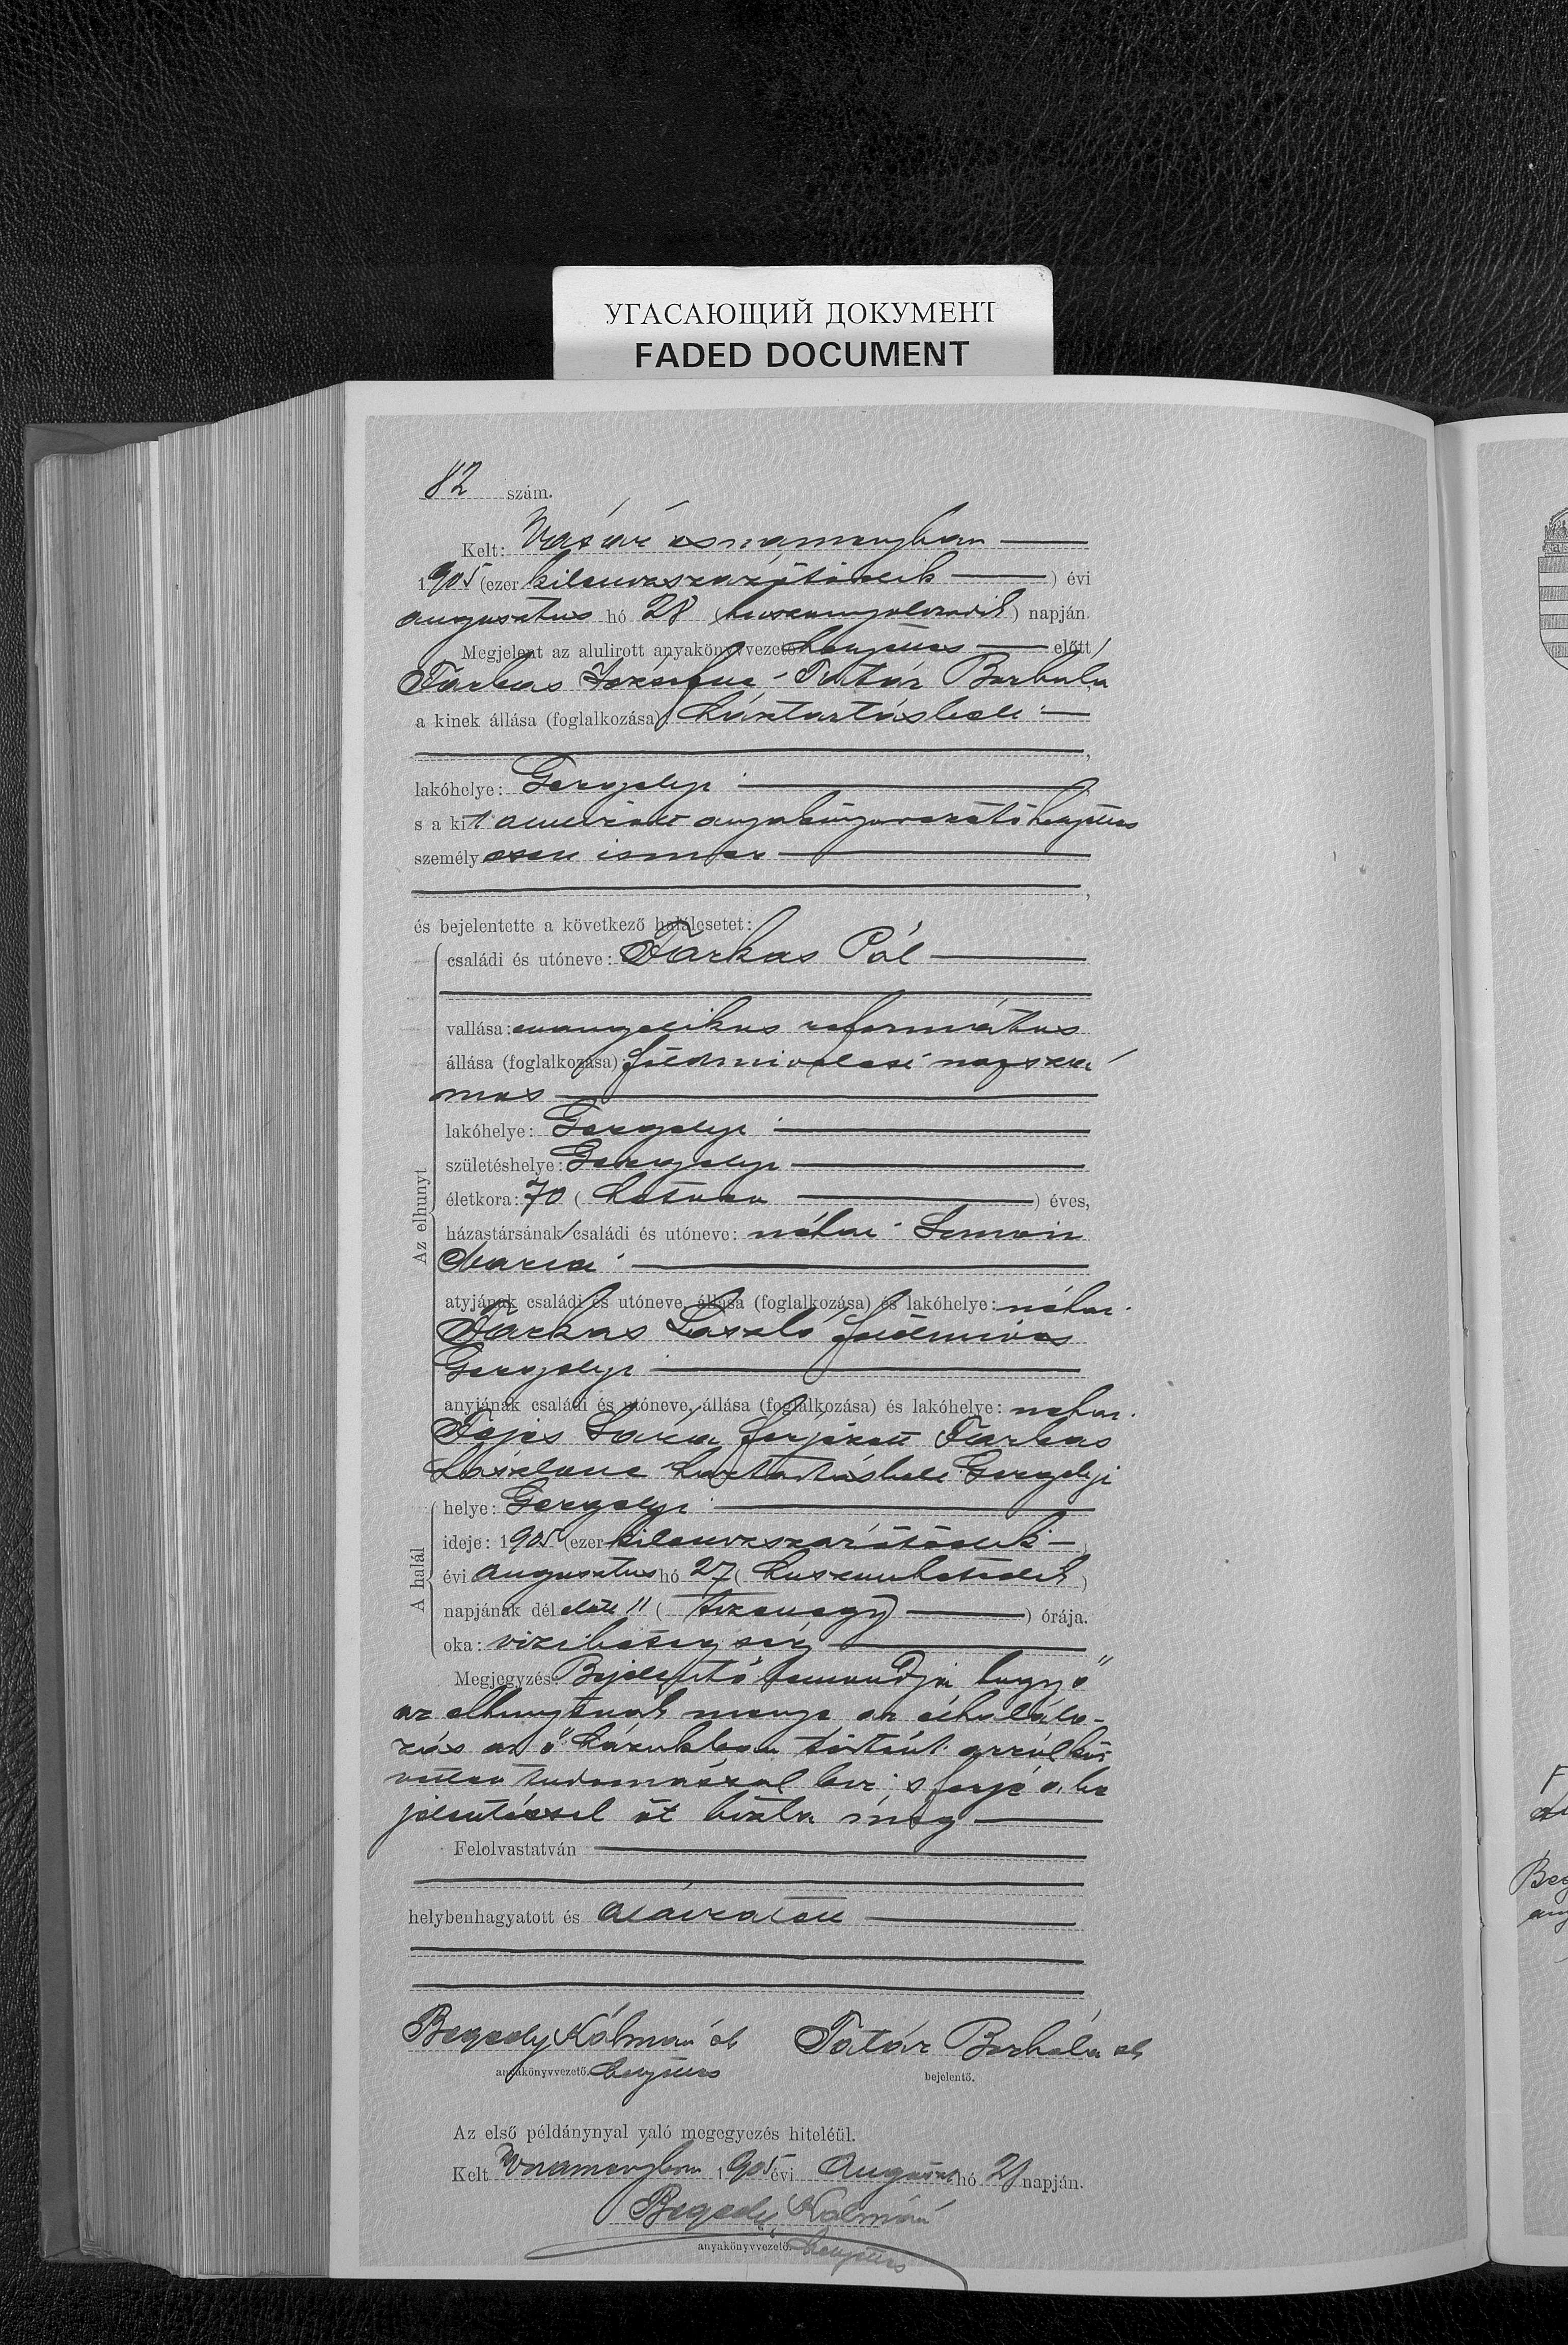 УГАСАЮЩИЙ ДОКУМЕНТ
FADED DOCUMENT
82 szám.
Kelt: Vásárosnaményban
1905 (ezer kilenczszázötödik) évi
augusztus hó 28 (huszonnyolczadik) napján.
Megjelent az alulirott anyakönyvvezető helyettes előtt
Farkas Józsefné Tatár Borbála
a kinek állása (foglalkozása): háztartásbeli
lakóhelye: Gergelyi
s a kit anyakönyvvezető helyettes
személyesen ismer
és bejelentette a következő halálesetet:
Az elhunyt
családi és utóneve: Farkas Pál
vallása: evangelikus református
állása (foglalkozása): földmivelesi napszá
mos
lakóhelye: Gergelyi
születéshelye: Gergelyi
életkora: 70 (hetven) éves,
házastársának családi és utóneve: néhai
Mária
atyjának családi és utóneve, állása (foglalkozása) és lakóhelye: néhai
Farkas László földmives
Gergelyi
anyjának családi és utóneve, állása (foglalkozása) és lakóhelye: néhai
Fejes Sára férjezett Farkas
Lászlóné háztartásbeli Gergelyi
A halál
helye: Gergelyi
ideje: 1905 (ezer kilenczszázötödik)
évi augusztus hó 27 (huszonhetedik)
napjának dél előtt 11 (tizenegy) órája.
oka: vizibetegség
Megjegyzés: Bejelentő bemondja hogy ő
az elhunytnak menye az elhalálo-
zás az ő házukban történt arról köz
vetlen tudomással bir s férje a be
jelentéssel őt bizta meg
Felolvastatván
helybenhagyatott és aláiratott
Begedy Kálmán sk Tatár Borbála sk
anyakönyvvezető. helyettes bejelentő.
Az első példánynyal való megegyezés hiteléül.
Kelt Vnaményban 1905 évi hó napján.
Begedy Kálmán
anyakönyvvezető. helyettes